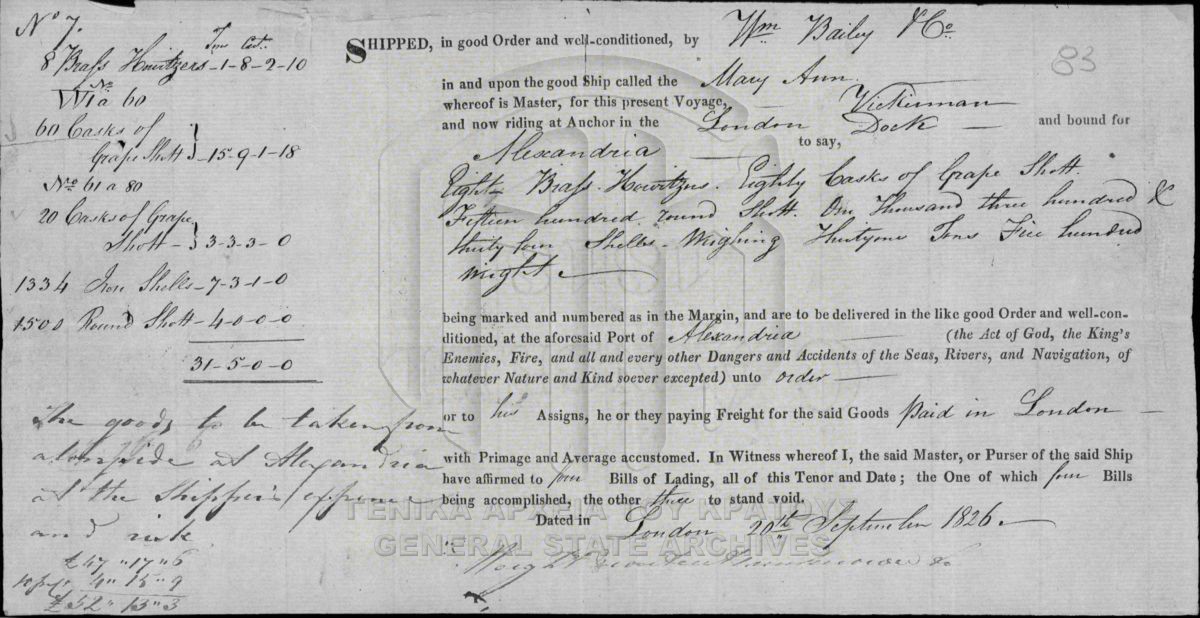 No 7.
Tons Cwt.
8 Brass Howitzers - 1 - 8 - 2 - 10
No
W 1 a 60
60 Casks of
Grape Shott } - 15 - 9 - 1 - 18
Nos 61 a 80
20 Casks of Grape
Shott - } 3 - 3 - 3 - 0
1334 Iron Shells - 7 - 3 - 1 - 0
1500 Round Shott - 4 - 0 - 0 - 0
31 - 5 - 0 - 0
The goods to be taken from
alongside at Alexandria
at the Shipper's expence
and risk
£47 " 17 " 6
4 " 15 " 9
£52 " 13 " 3
83
SHIPPED, in good Order and well-conditioned, by Wm Bailey & Co
in and upon the good Ship called the Mary Ann
whereof is Master, for this present Voyage, Vickerman
and now riding at Anchor in the London Dock — and bound for
Alexandria — to say,
Eight - Brass - Howitzers. Eighty Casks of Grape Shott.
Fifteen hundred round Shott. One Thousand three hundred &
thirty four Shells - Weighing Thirty one Tons Five hundred
weight —
being marked and numbered as in the Margin, and are to be delivered in the like good Order and well-con-
ditioned, at the aforesaid Port of Alexandria — (the Act of God, the King's
Enemies, Fire, and all and every other Dangers and Accidents of the Seas, Rivers, and Navigation, of
whatever Nature and Kind soever excepted) unto order —
or to his Assigns, he or they paying Freight for the said Goods Paid in London —
with Primage and Average accustomed. In Witness whereof I, the said Master, or Purser of the said Ship
have affirmed to four Bills of Lading, all of this Tenor and Date; the One of which four Bills
being accomplished, the other three to stand void.
Dated in London 20th September 1826 —
Weight
ΓΕΝΙΚΑ ΑΡΧΕΙΑ ΤΟΥ ΚΡΑΤΟΥΣ
GENERAL STATE ARCHIVES